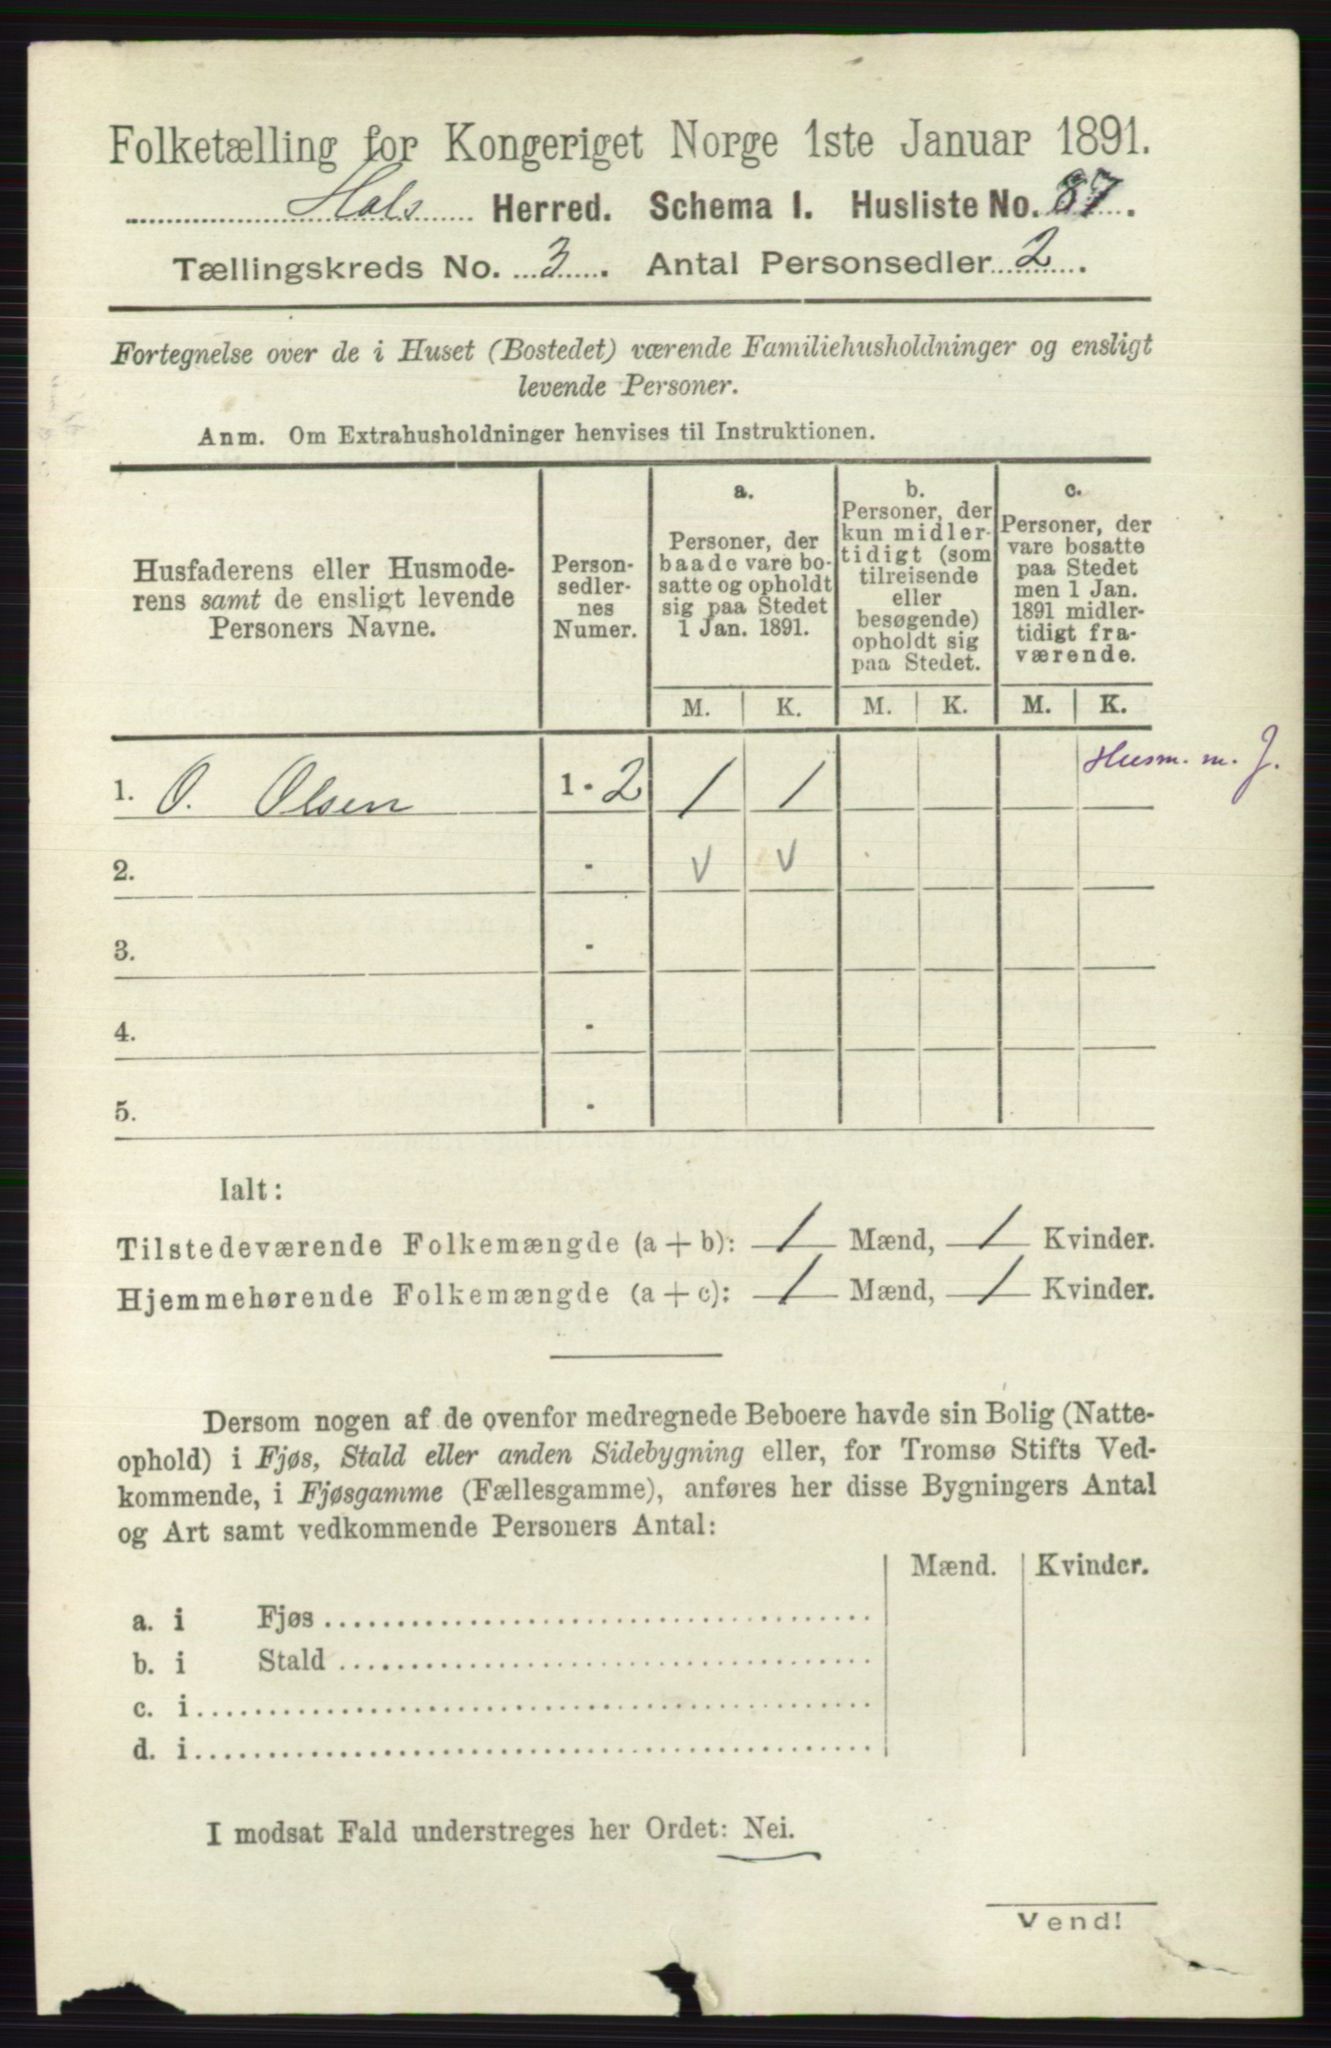 Folketælling for Kongeriget Norge 1ste Januar 1891.
Hals Herred. Schema I. Husliste No. 87.
Tællingskreds No. 3. Antal Personsedler 2.
Fortegnelse over de i Huset (Bostedet) værende Familiehusholdninger og ensligt
levende Personer.
Anm. Om Extrahusholdninger henvises til Instruktionen.
Husfaderens eller Husmode-
rens samt de ensligt levende
Personers Navne.
Person-
sedler-
nes
Numer.
a.
Personer, der
baade vare bo-
satte og opholdt
sig paa Stedet
1 Jan. 1891.
b.
Personer, der
kun midler-
tidigt (som
tilreisende
eller
besøgende)
opholdt sig
paa Stedet.
c.
Personer, der
vare bosatte
paa Stedet
men 1 Jan.
1891 midler-
tidigt fra-
værende.
M. K. M. K. M. K.
Husm. m. J.
1. O. Olsen 1 - 2 / /
2. - V V
3. -
4. -
5. -
Ialt:
Tilstedeværende Folkemængde (a + b): 1 Mænd, 1 Kvinder.
Hjemmehørende Folkemængde (a + c): 1 Mænd, 1 Kvinder.
Dersom nogen af de ovenfor medregnede Beboere havde sin Bolig (Natte-
ophold) i Fjøs, Stald eller anden Sidebygning eller, for Tromsø Stifts Ved-
kommende, i Fjøsgamme (Fællesgamme), anføres her disse Bygningers Antal
og Art samt vedkommende Personers Antal:
Mænd. Kvinder.
a. i Fjøs
b. i Stald
c. i
d. i
I modsat Fald understreges her Ordet: Nei.
Vend!